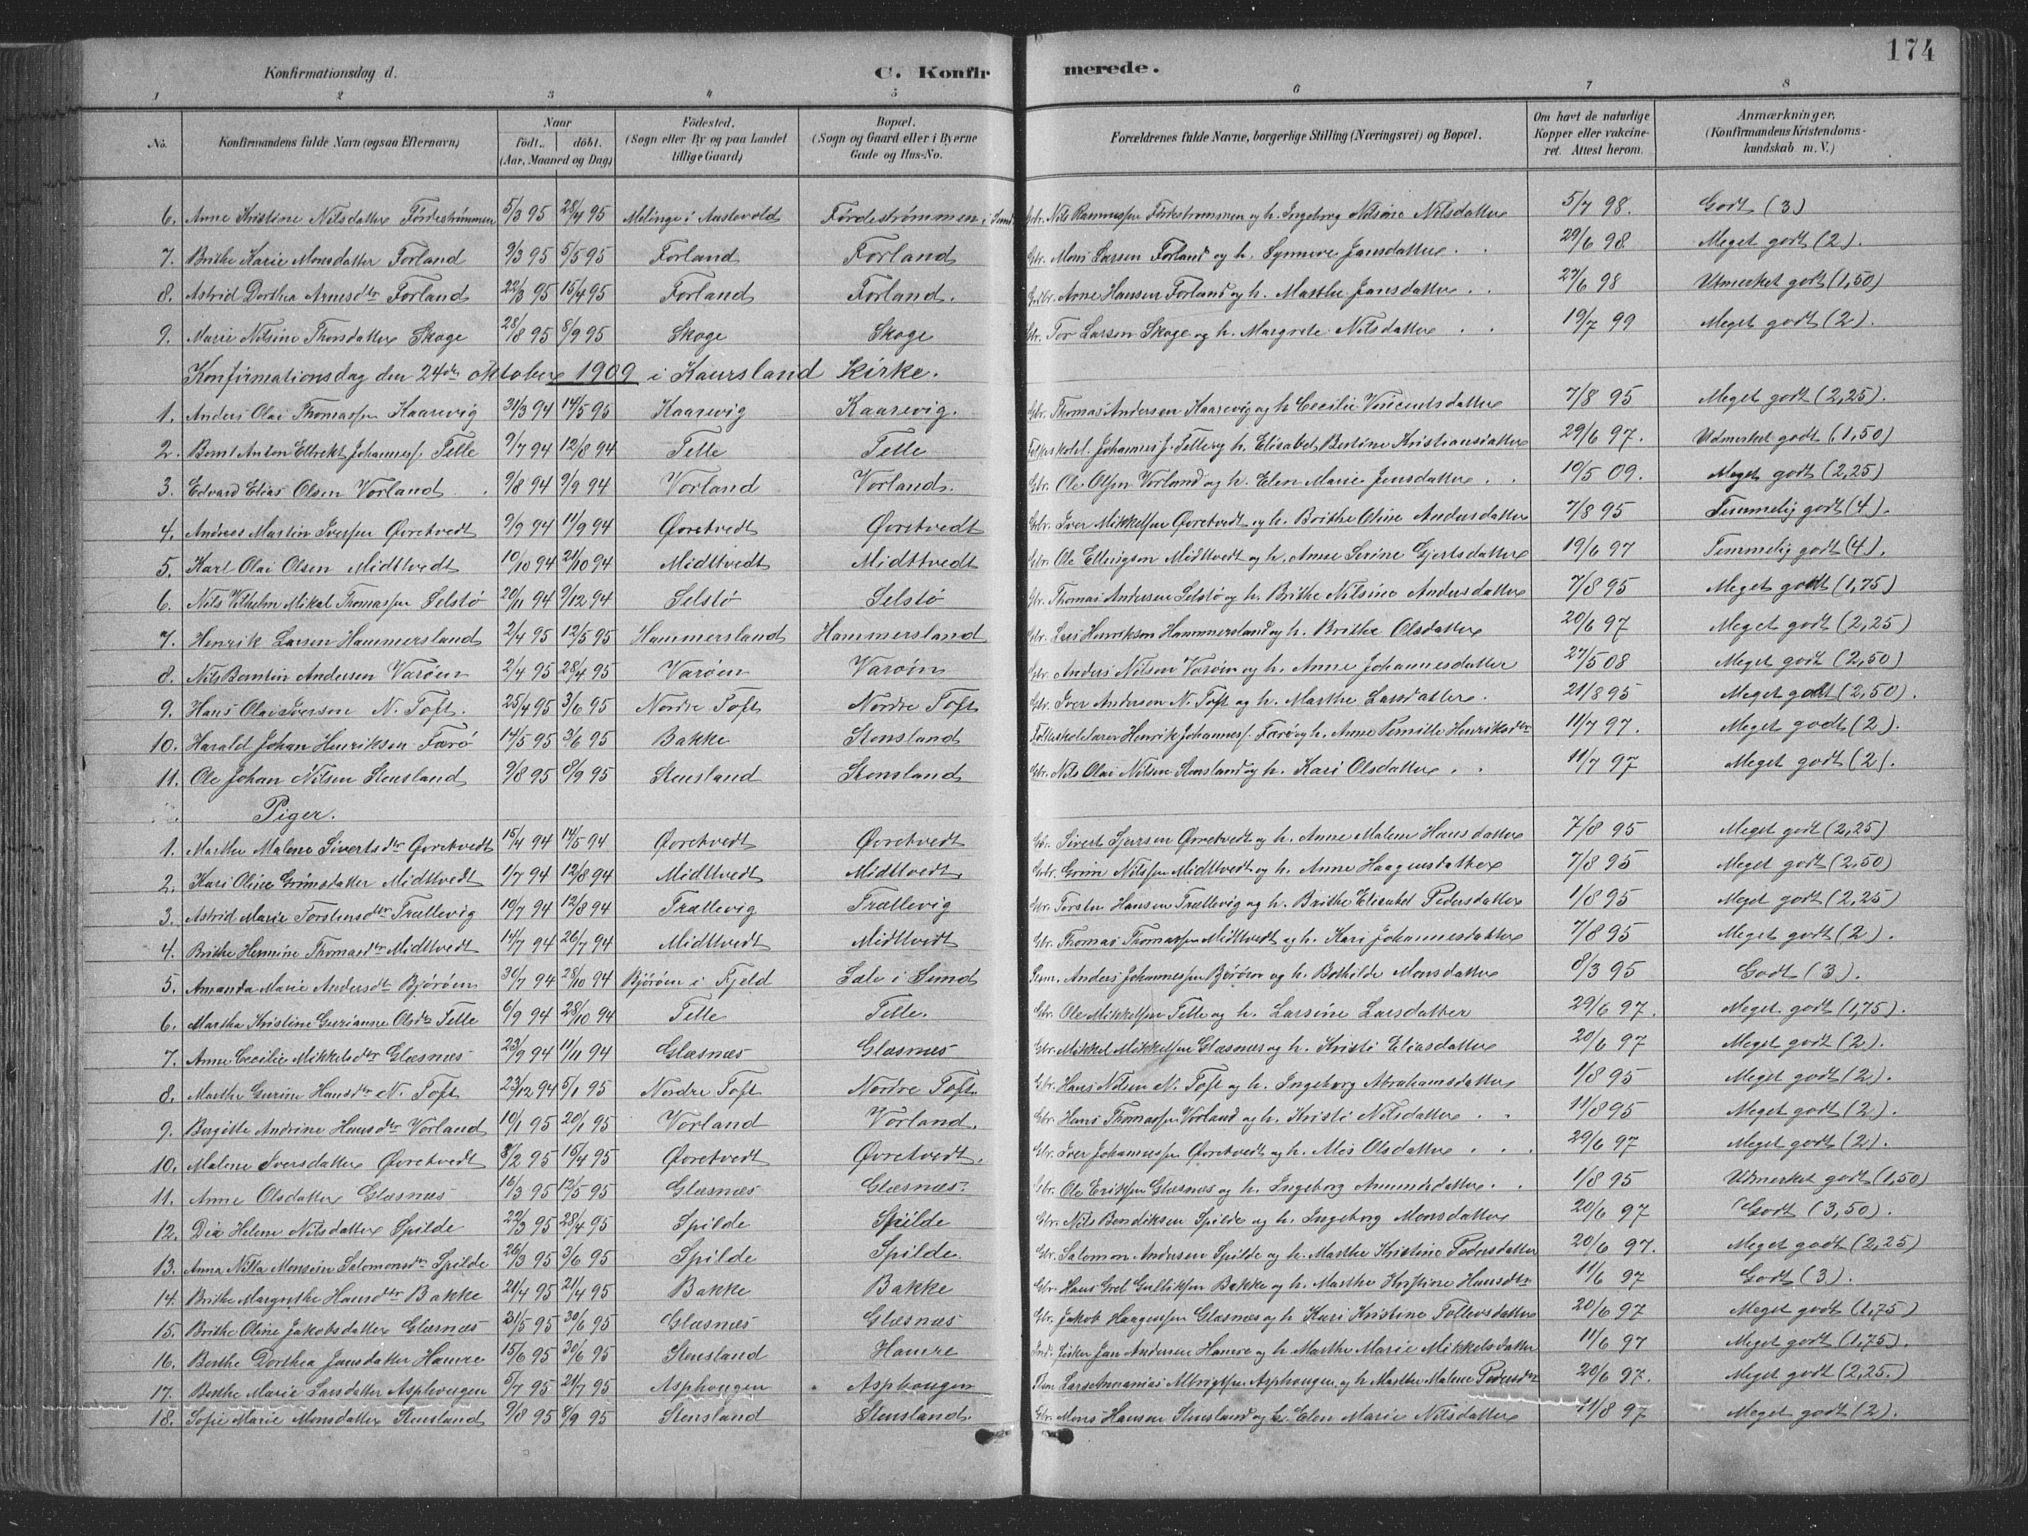 174
Konfirmationsdag d.
C. Konfirmerede.
1 2 3 4 5 6 7 8
No. Konfirmandens fulde Navn (ogsaa Efternavn) Naar født, døbt. (Aar, Maaned og Dag) Fødested. (Sogn eller By og paa Landet tillige Gaard) Bopæl. (Sogn og Gaard eller i Byerne Gade og Hus-No. Forældrenes fulde Navne, borgerlige Stilling (Næringsvei) og Bopæl. Om havt de naturlige Kopper eller vakcineret. Attest herom. Anmærkninger, (Konfirmandens Kristendomskundskab m. V.)
6. Anne Kristine Nilsdatter Førdestrømmen 5/3 95 28/4 95 Melinge i Austevold Førdestrømmen i Sund Gbr. Nils Rasmussen Førdestrømmen og h. Ingeborg Nilsine Nilsdatter 5/7 98. Godt (3)
7. Brithe Karie Monsdatter Forland 9/3 95 5/5 95 Forland Forland Gbr. Mons Larsen Forland og h. Synneve Jansdatter 29/6 98 Meget godt (2).
8. Astrid Dorthea Arnesdtr Forland 22/3 95 15/4 95 Forland Forland. Gbr. Arne Hansen Forland og h. Marthe Jansdatter 27/6 98 Utmerket godt (1,50)
9. Marie Nilsine Thorsdatter Skoge 28/8 95 8/9 95 Skoge Skoge Gbr. Tor Larsen Skoge og h. Margrete Nilsdatter 19/7 99 Meget godt (2).
Konfirmationsdag den 24de oktober 1909 i Kaursland Kirke.
1. Anders Olai Thomassen Kaarevig 31/3 94 14/5 95 Kaarevig Kaarevig. Gbr. Thomas Andersen Kaarevig og h. Cecilie Vincentsdatter 7/8 95 Meget godt (2,25).
2. Bernt Anton Ellrekt Johannes. Telle 9/7 94 12/8 94 Telle Telle Johannes J. Telle og h. Elisabet Bertine Kristiansdatter 29/6 97. Udmerket godt (1,50)
3. Edvard Elias Olsen Vorland 9/8 94 9/9 94 Vorland Vorland. Gbr. Ole Olsen Vorland og h. Elen Marie Jensdatter 19/5 09. Meget godt (2,25)
4. Andreas Martin Iversen Øvretvedt 9/9 94 11/9 94 Øvretvedt Øvretvedt Gbr. Iver Mikkelsen Øvretvedt og h. Brithe Oline Andersdatter 7/8 95 Temmelig godt (4).
5. Karl Olai Olsen Midttvedt 10/10 94 21/10 94 Midttvedt Midttvedt Gbr. Ole Ellingsen Midttvedt og h. Anne Serine Gjertsdatter 19/6 97 Temmelig godt (4).
6. Nils Vilhelm Mikal Thomassen Selstø 20/11 94 9/12 94 Selstø Selstø Gbr. Thomas Andersen Selstø og h. Brithe Nilsine Andersdatter 7/8 95 Meget godt (1,75)
7. Henrik Larsen Hammersland 2/4 95 12/5 95 Hammersland Hammersland Gbr. Lars Henrikson Hammersland og h. Brithe Olsdatter 20/6 97 Meget godt (2,25)
8. Nils Berntin Andersen Varøen 2/4 95 28/4 95 Varøen Varøen Gbr. Anders Nilsen Varøen og h. Anne Johannesdatter 27/5 08 Meget godt (2,50)
9. Hans Olai Iversen N. Toft. 25/4 95 3/6 95 Nordre Toft Nordre Toft Gbr. Iver Andersen N. Toft og h. Marthe Larsdatter. 21/8 95 Meget godt (2,50).
10. Harald Johan Henriksen Færø 14/5 95 3/6 95 Bakke Stensland Folkeskolelærer Henrik Johannes. Færø og h. Anne Pernille Henriksdtr 11/7 97. Meget godt (2).
11. Ole Johan Nilsen Stensland 9/8 95 8/9 95 Stensland Stensland Gbr. Nils Olai Nilsen Stensland og h. Kari Olsdatter 11/7 97 Meget godt (2).
Piger.
1. Marthe Malene Sivertsdtr Øvretvedt 15/4 94 14/5 94 Øvretvedt Øvretvedt Gbr. Sivert Øvretvedt og h. Anne Malene Hansdatter 7/8 95 Meget godt (2,25)
2. Kari Oline Grimsdatter Midttvedt 1/7 94 12/8 94 Midttvedt Midttvedt. Gbr. Grim Nilssen Midttvedt og h. Anne Haagensdatter 7/8 95 Meget godt (2,50)
3. Astrid Marie Torstensdtr Trællevig 10/7 94 12/8 94 Trællevig Trællevig Gbr. Torsten Hansen Trællevig og h. Brithe Elisabet Pedersdatter 1/8 95 Meget godt (2,25)
4. Brithe Hermine Thomasdtr Midttvedt 14/7 94 26/7 94 Midttvedt Midttvedt Gbr. Thomas Thomassen Midttvedt og h. Kari Johannesdatter 7/8 95 Meget godt (2).
5. Amanda Marie Andersdtr Bjørøen 30/7 94 28/10 94 Bjørøen i Fjeld Sale i Sund Anders Johannessen Bjørøen og h. Bothilde Monsdatter 8/3 95 Godt (3).
6. Martha Kristine Gurianne Olsdtr Telle 6/9 94 28/10 94 Telle Telle. Gbr. Ole Mikkelsen Telle og h. Larsine Larsdatter 29/6 97. Meget godt (1,75).
7. Anne Cecilie Mikkelsdtr Glæsnæs 23/9 94 11/11 94 Glæsnæs Glæsnæs Gbr. Mikkel Mikkelsen Glæsnæs og h. Kristi Eliasdatter 20/6 97 Meget godt (2).
8. Marthe Gurine Hansdtr N. Toft 23/12 94 5/1 95 Nordre Toft Nordre Toft. Gbr. Hans Nilsen N. Toft og h. Ingeborg Abrahamsdatter 1/8 95 Meget godt (2).
9. Birgitte Andrine Hansdtr Vorland 10/1 95 20/1 95 Vorland Vorland. Gbr. Hans Thomassen Vorland og h. Kristi Nilsdatter 11/8 95 Meget godt (2).
10. Malene Iversdatter Øvretvedt 8/2 95 15/4 95 Øvretvedt Øvretvedt. Gbr. Iver Johannessen Øvretvedt og h. Mos Olsdatter 29/6 97 Meget godt (2).
11. Anne Olsdatter Glæsnæs 16/3 95 12/5 95 Glæsnæs Glæsnæs. Gbr. Ole Eriksen Glæsnæs og h. Ingeborg Amundsdatter 1/8 95 Udmerket godt (1,50)
12. Dia Helene Nilsdatter Spilde 22/3 95 28/4 95 Spilde Spilde Gbr. Nils Bendiksen Spilde og h. Ingeborg Monsdatter 20/6 97 Godt (3,50).
13. Anna Nilla Monsine Salomonsdtr Spilde 26/3 95 3/6 95 Spilde Spilde. Gbr. Salomon Andersen Spilde og h. Marthe Kristine Pedersdatter 20/6 97. Meget godt (2,25)
14. Brithe Margrethe Hansdtr Bakke 21/4 95 21/4 95 Bakke Bakke Gbr. Hans Gulliksen Bakke og h. Marthe Kristine Hansdtr 11/6 97 Godt (3).
15. Brithe Oline Jakobsdatter Glæsnæs 31/5 95 30/6 95 Glæsnæs Glæsnæs Gbr. Jakob Haagensen Glæsnæs og h. Kari Kristine Tollevsdatter 20/6 97 Meget godt (1,75)
16. Berthe Dorthea Jansdatter Hamre 15/6 95 30/6 95 Stensland Hamre Ind. Fisker Jan Andersen Hamre og h. Marthe Marie Mikkelsdatter 11/6 97 Meget godt (1,75).
17. Berthe Marie Larsdatter Asphougen 5/7 95 21/7 95 Asphougen Asphougen Lars Annanias Albrigtsen Asphougen og h. Marthe Malene Pedersdtr 20/6 97. Meget godt (2,25.)
18. Sofie Marie Monsdatter Stensland 9/8 95 8/9 95 Stensland Stensland. Gbr. Mons Hansen Stensland og h. Elen Marie Nilsdatter 11/8 97 Meget godt (2).